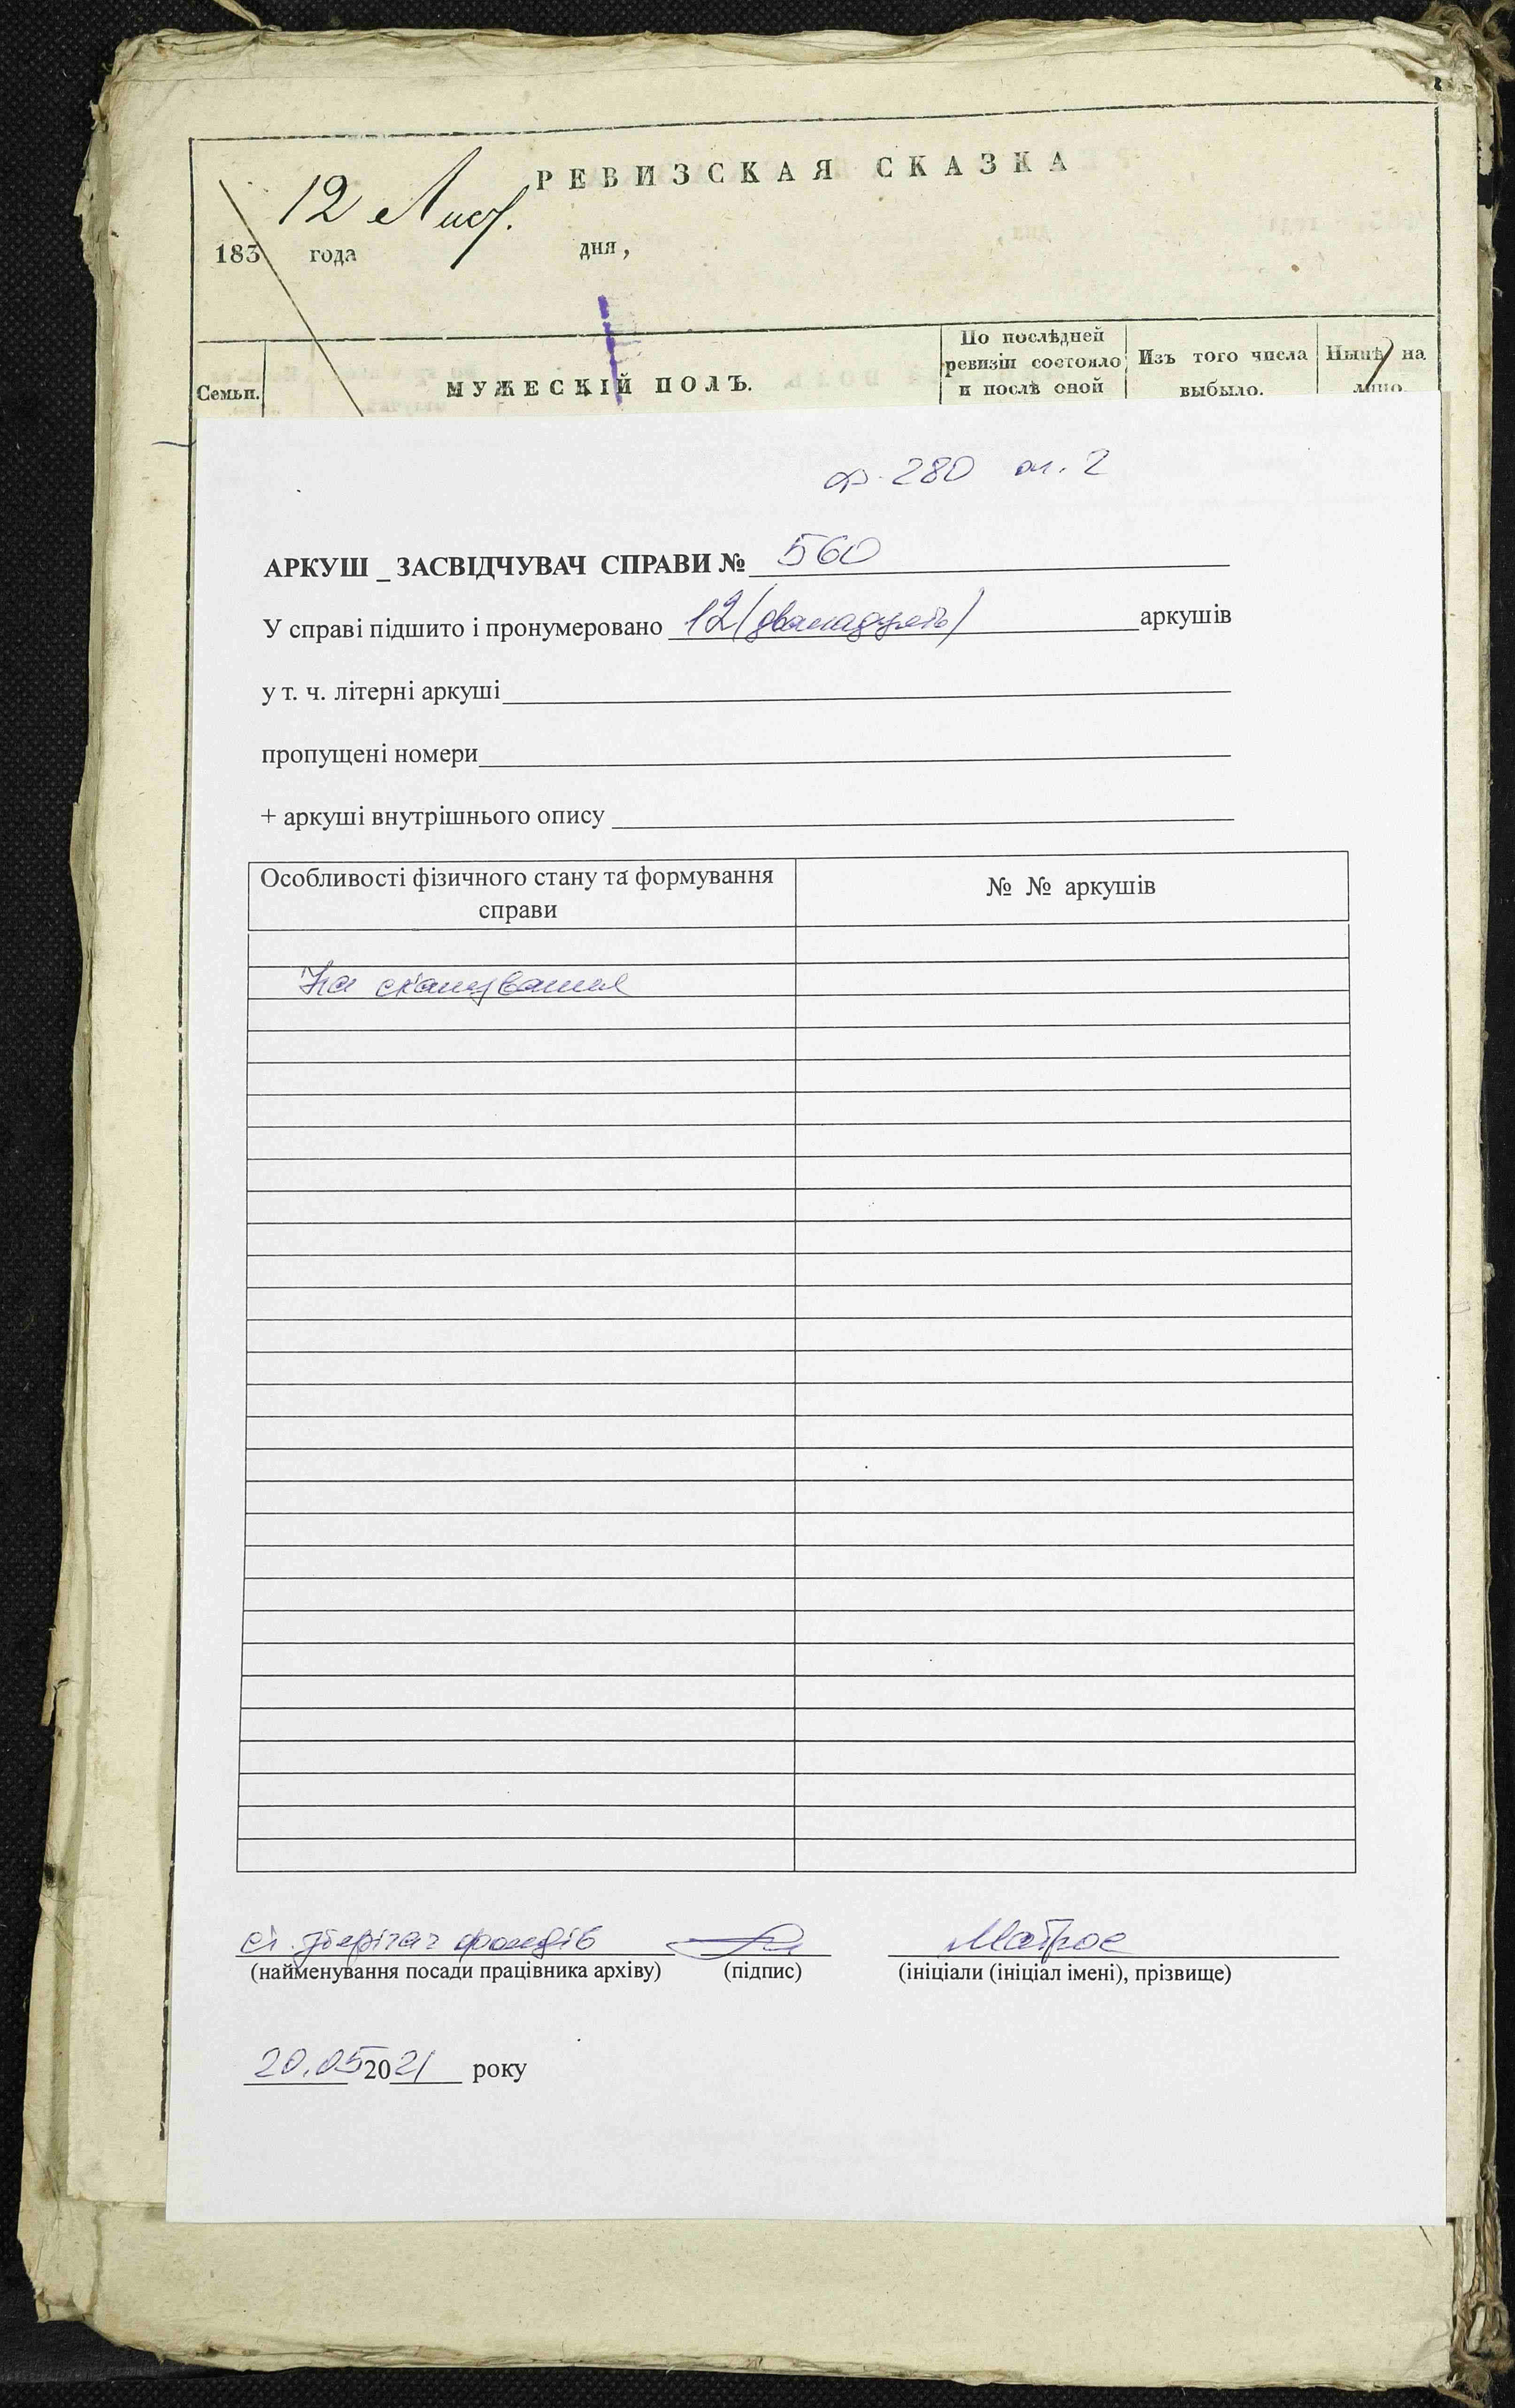 РЕВИЗСКАЯ СКАЗКА
12 Лист.
183 года дня,
Семьи.
МУЖЕСКІЙ ПОЛЪ.
По послѣдней
ревизіи состояло
и послѣ оной
Изъ того числа
выбыло.
Нынѣ на
лицо.
ф. 280 оп. 2
АРКУШ _ ЗАСВІДЧУВАЧ СПРАВИ № 560
У справі підшито і пронумеровано 12 (дванадцять) аркушів
у т. ч. літерні аркуші
пропущені номери
+ аркуші внутрішнього опису
Особливості фізичного стану та формування
справи
№ № аркушів
На сканування
ст. зберігач фондів
Матрос
(найменування посади працівника архіву) (підпис) (ініціали (ініціал імені), прізвище)
20.05 2021 року